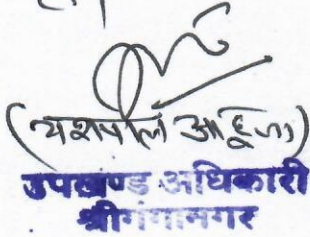 (यशपाल आहूजा)
उपखण्ड अधिकारी
श्रीगंगानगर